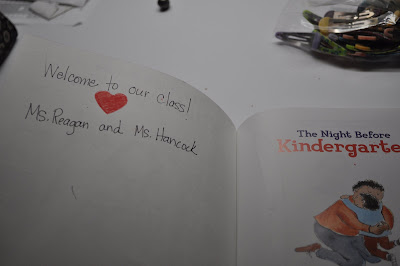 Welcome to our class!
Ms. Reagan and Ms. Hancock
The Night Before
Kindergarte